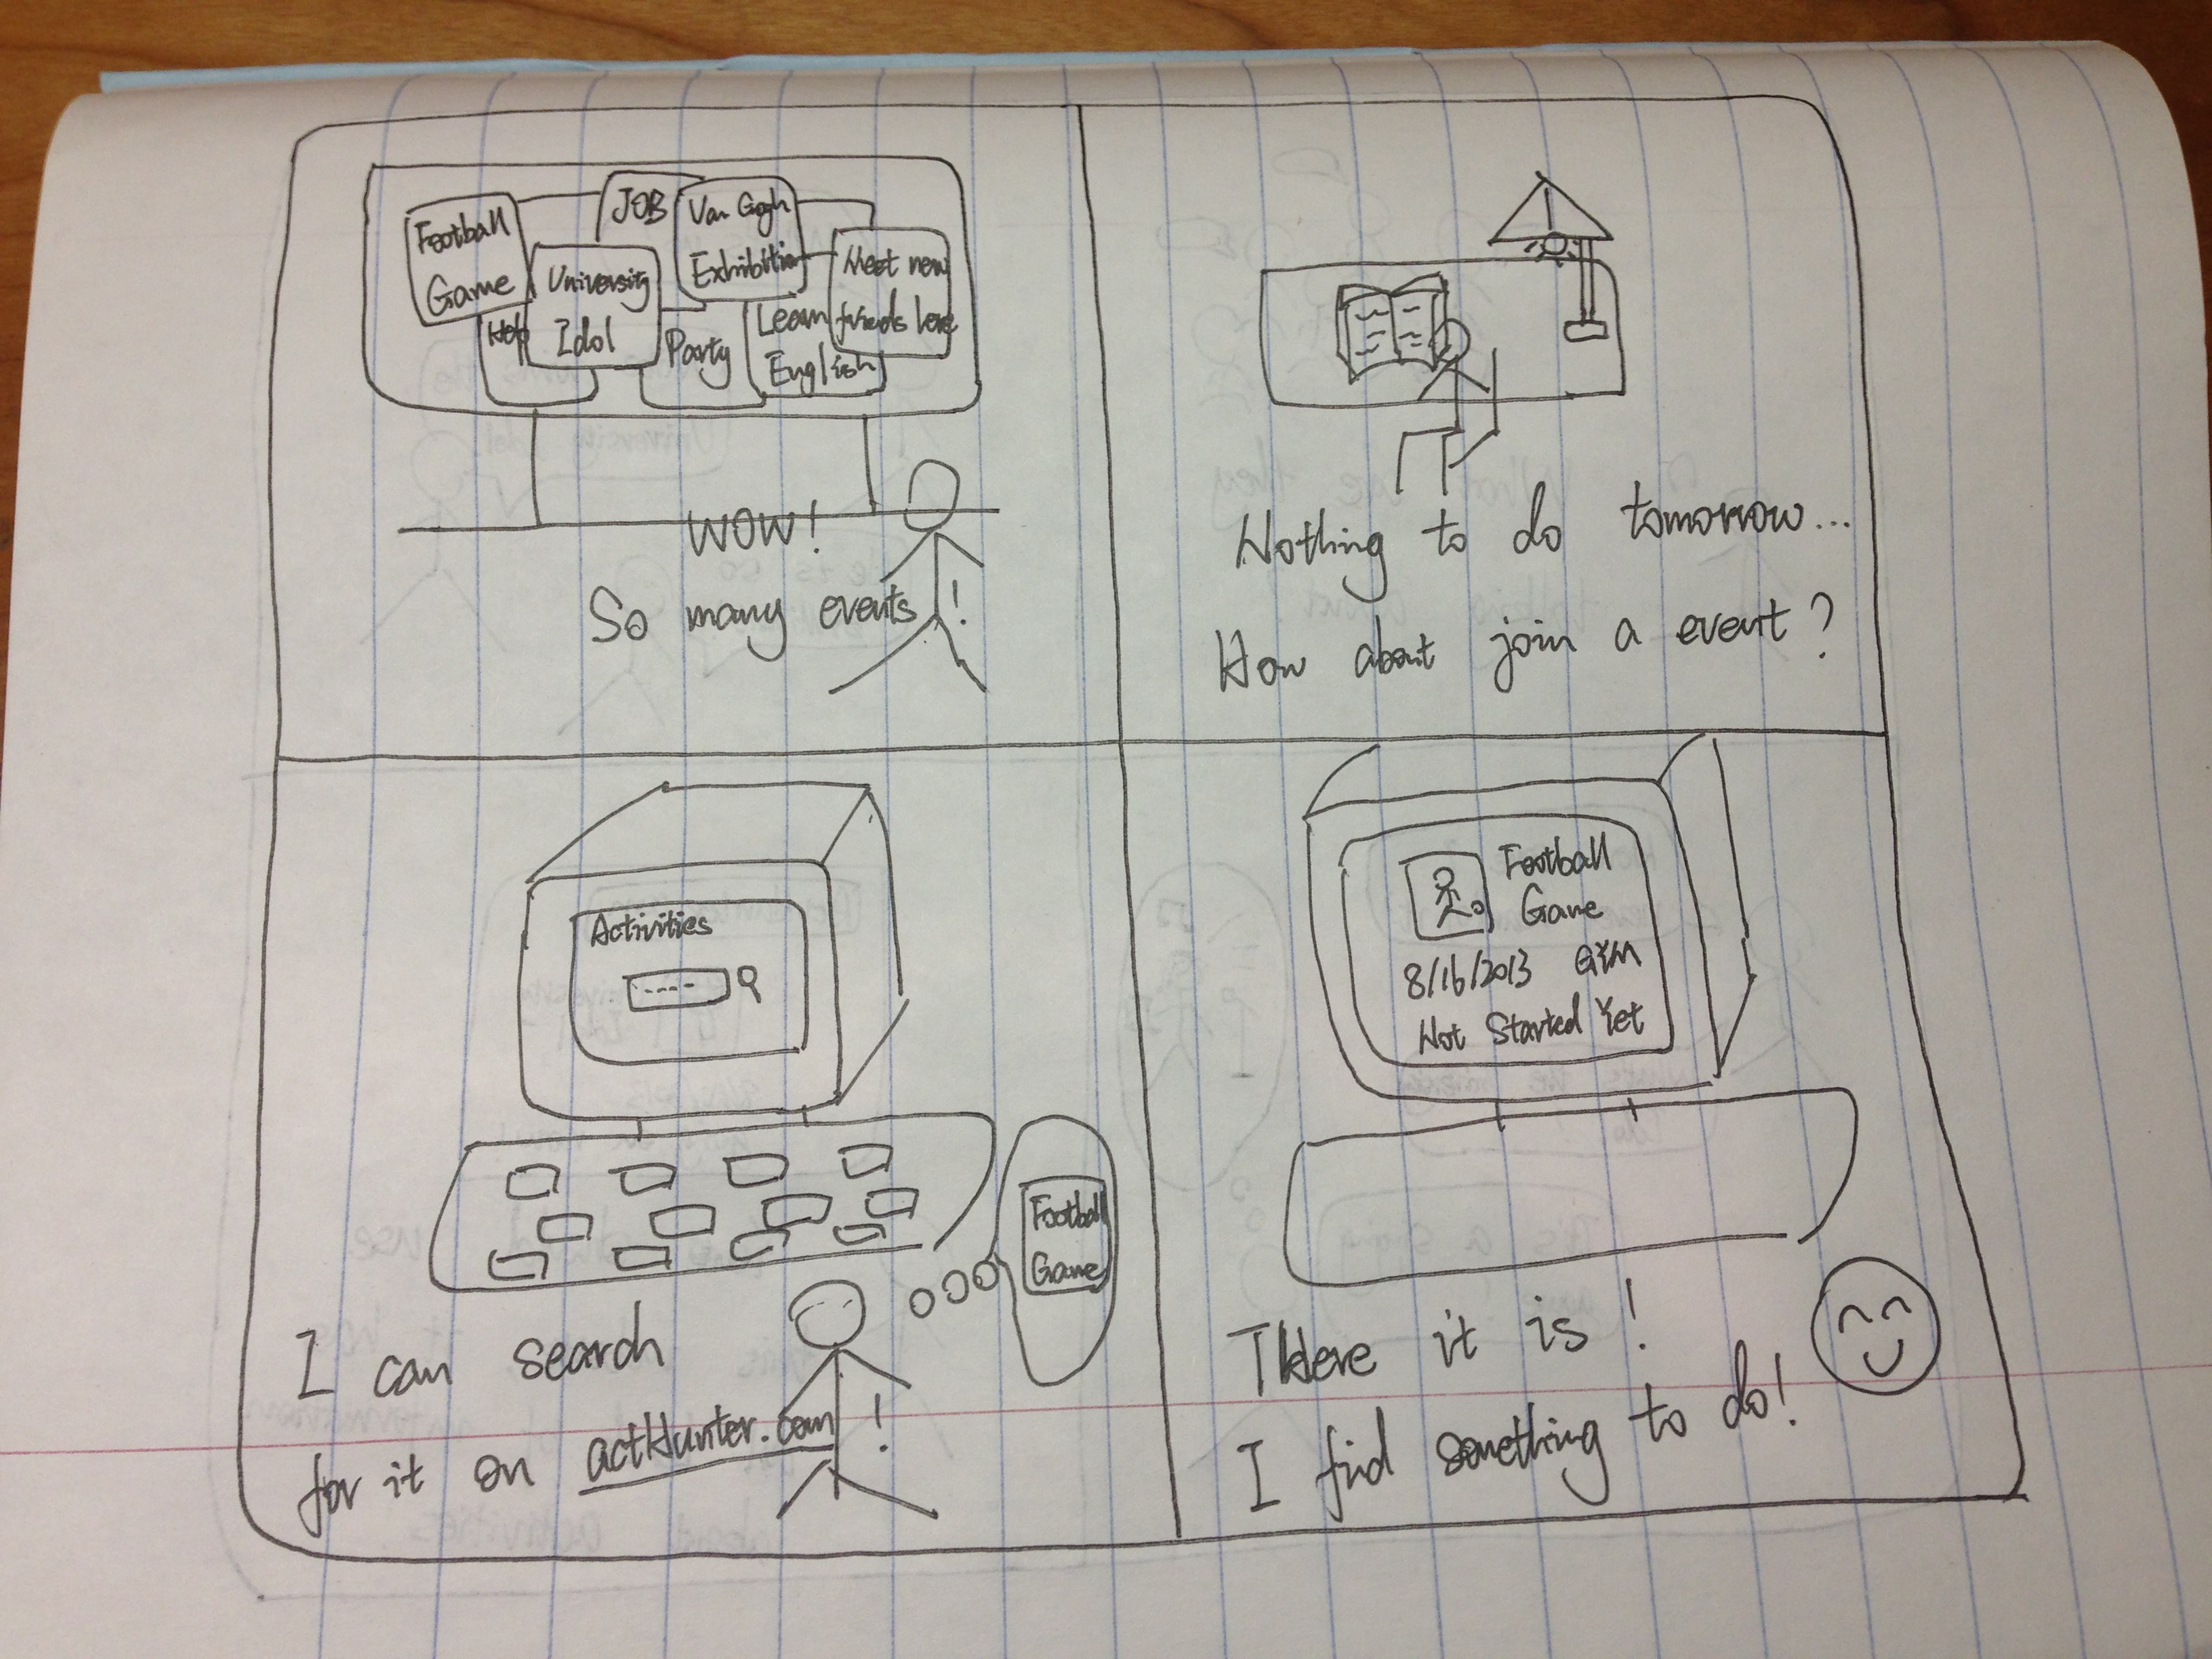 Football
Game
JOB
Van Gogh
Exhibition
University
Idol
Party
Learn
English
Meet new
friends here
WOW!
So many events!
Nothing to do tomorrow...
How about join a event?
Activities
----
Football
Game
I can search
for it on actHunter.com!
Football
Game
8/16/2013 GYM
Not Started Yet
THere it is!
I find something to do!